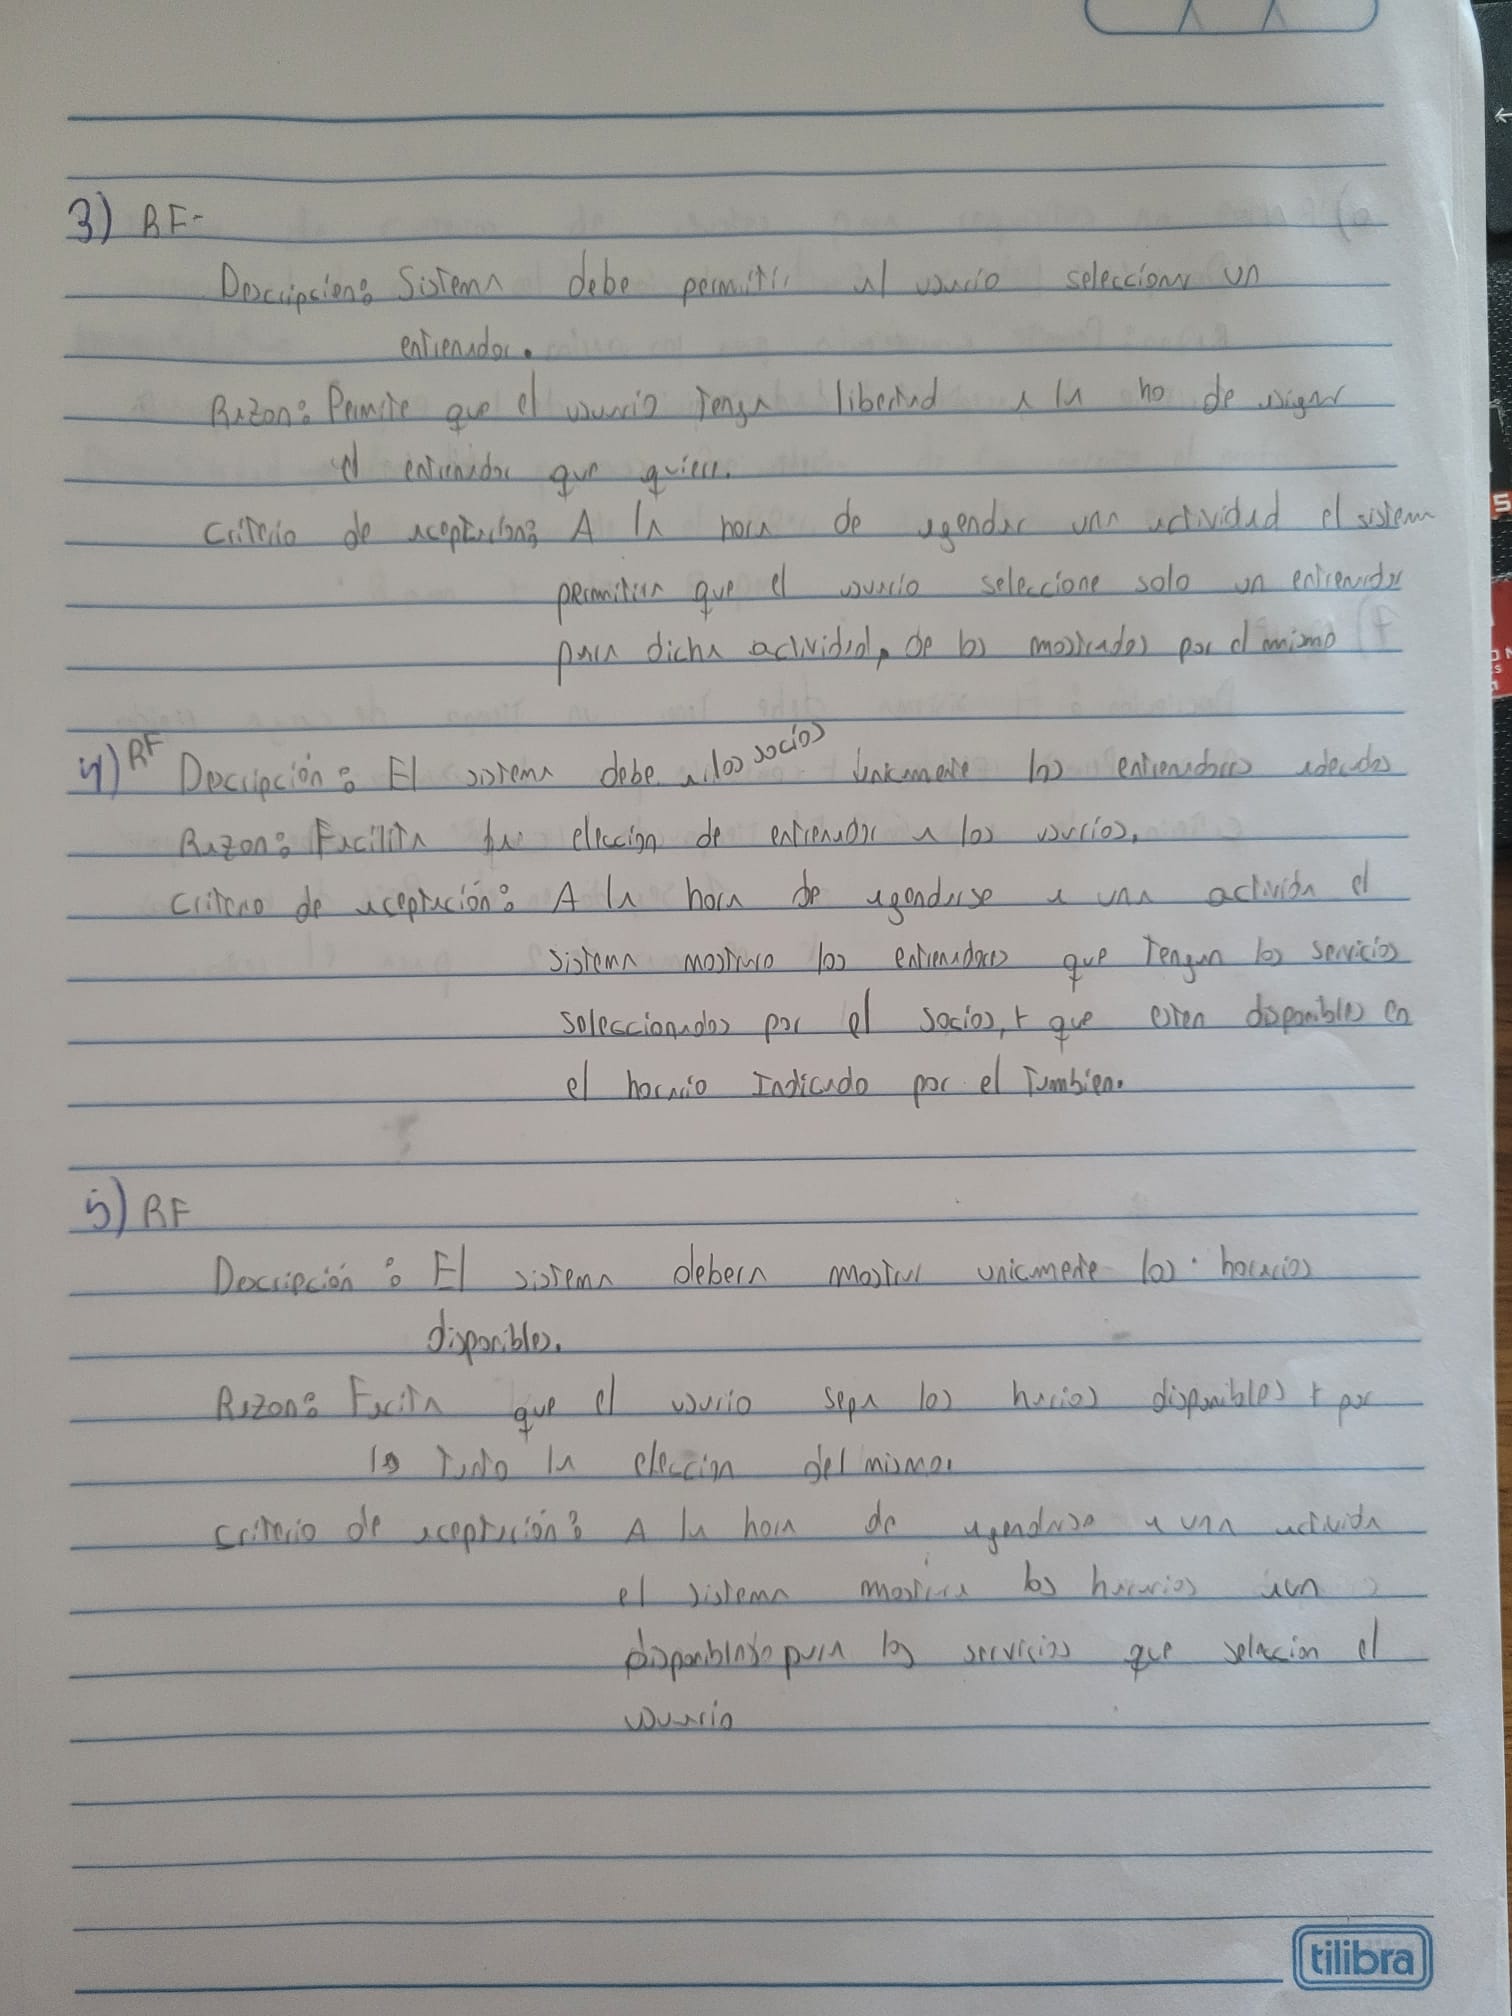 3) RF-
Descripcion: Sistema debe permitir al usuario seleccionar un
entrenador.
Razon: Permite que el usuario tenga libertad a la ho de
el entrenador que quiere.
Criterio de aceptacion: A la hora de agendar una actividad el sistema
permitira que el usuario seleccione solo un entrenador
para dicha actividad, de los mostrados por el mismo
4) RF Descripción: El sistema debe a los socios únicamente los entrenadores adecuados
Razon: Facilita la eleccion de entrenador a los usuarios.
Criterio de aceptación: A la hora de agendarse a una activida el
sistema mostrara los entrenadores que tengan los servicios
seleccionados por el socios, y que esten disponibles en
el horario Indicado por el Tambien.
5) RF
Descripción: El sistema debera mostrar unicamente los horarios
disponibles.
Razon: Facita que el usuario sepa los harios disponibles y por
lo tanto la eleccion del mismo.
Criterio de aceptación: A la hora de agendarse a una activida
el sistema mostrara los horarios aun
para los servicios que selecion el
usuario
tilibra